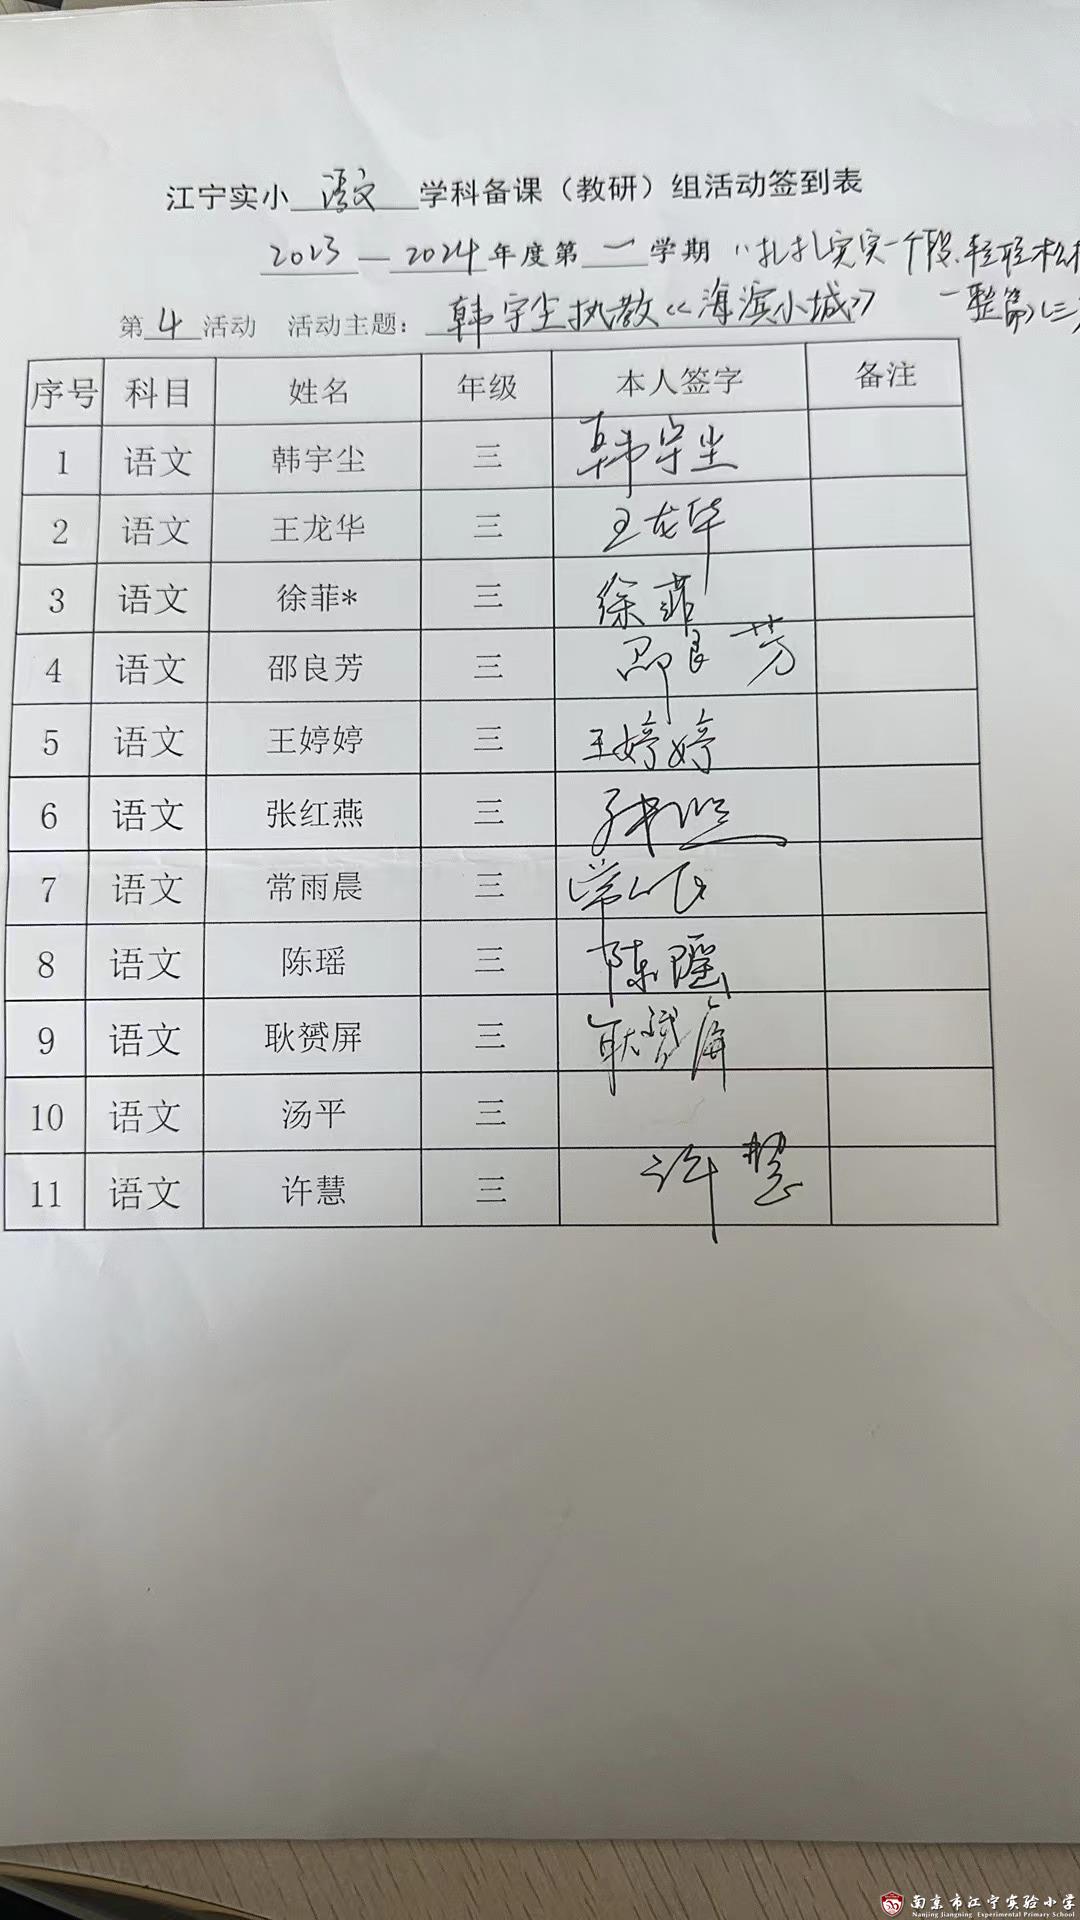 江宁实小 语文 学科备课（教研）组活动签到表
2023—2024年度第一学期 “扎扎实实一个段、轻轻松松
一整篇”（三）
第4活动 活动主题：韩宇尘执教《海滨小城》
序号 科目 姓名 年级 本人签字 备注
1 语文 韩宇尘 三 韩宇尘
2 语文 王龙华 三 王龙华
3 语文 徐菲* 三 徐菲
4 语文 邵良芳 三 邵良芳
5 语文 王婷婷 三 王婷婷
6 语文 张红燕 三 张红燕
7 语文 常雨晨 三 常雨晨
8 语文 陈瑶 三 陈瑶
9 语文 耿赟屏 三 耿赟屏
10 语文 汤平 三
11 语文 许慧 三 许慧
南京市江宁实验小学
Nanjing Jiangning Experimental Primary School